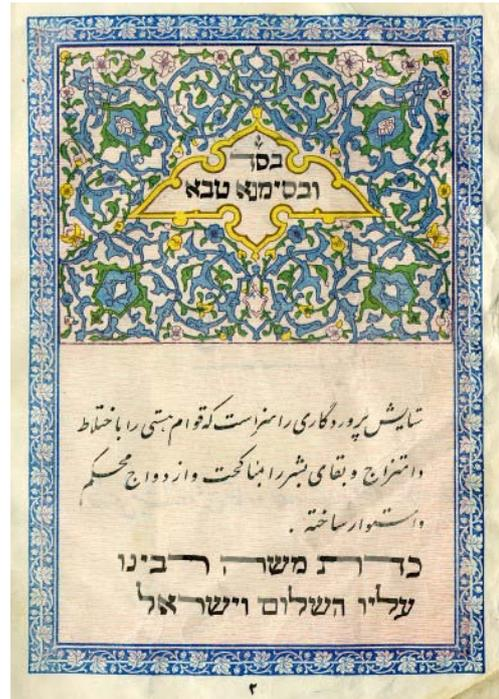 בס״ד
ובסימנא טבא
ستایش پروردگاری را سزاست که قوام هستی را با ختلاط
و امتزاج و بقای بشر را بمناکحت و ازدواج محکم
و استوار ساخته .
כדרת משה רבינו
עליו השלום וישראל
۲